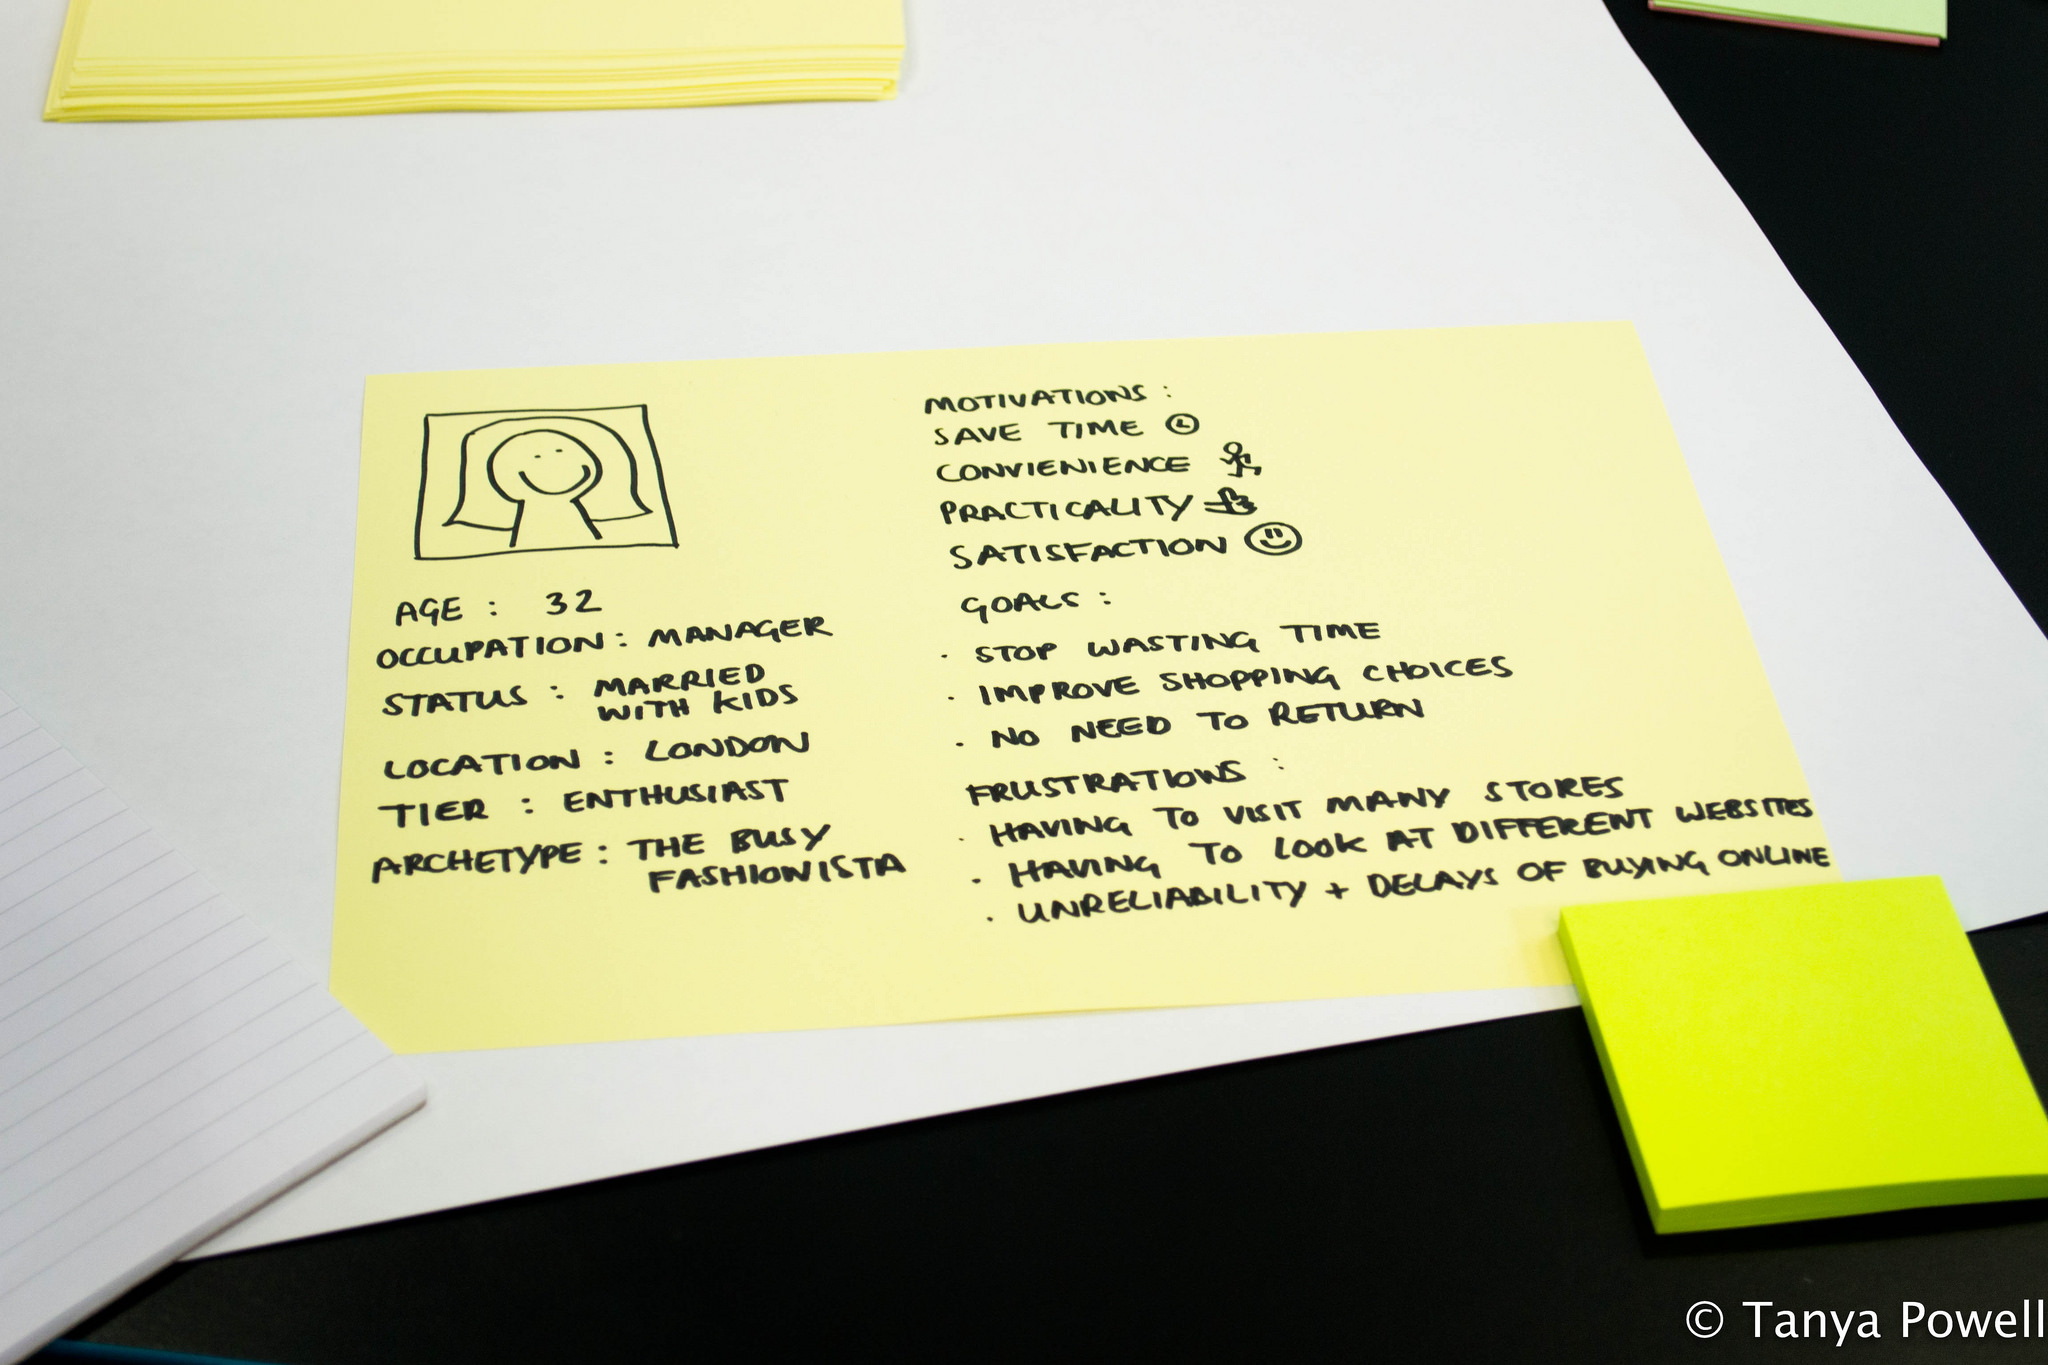 AGE : 32
OCCUPATION : MANAGER
STATUS : MARRIED
WITH KIDS
LOCATION : LONDON
TIER : ENTHUSIAST
ARCHETYPE : THE BUSY
FASHIONISTA
MOTIVATIONS :
SAVE TIME
CONVIENIENCE
PRACTICALITY
SATISFACTION
GOALS :
· STOP WASTING TIME
· IMPROVE SHOPPING CHOICES
· NO NEED TO RETURN
FRUSTRATIONS :
· HAVING TO VISIT MANY STORES
· HAVING TO LOOK AT DIFFERENT WEBSITES
· UNRELIABILITY + DELAYS OF BUYING ONLINE
© Tanya Powell